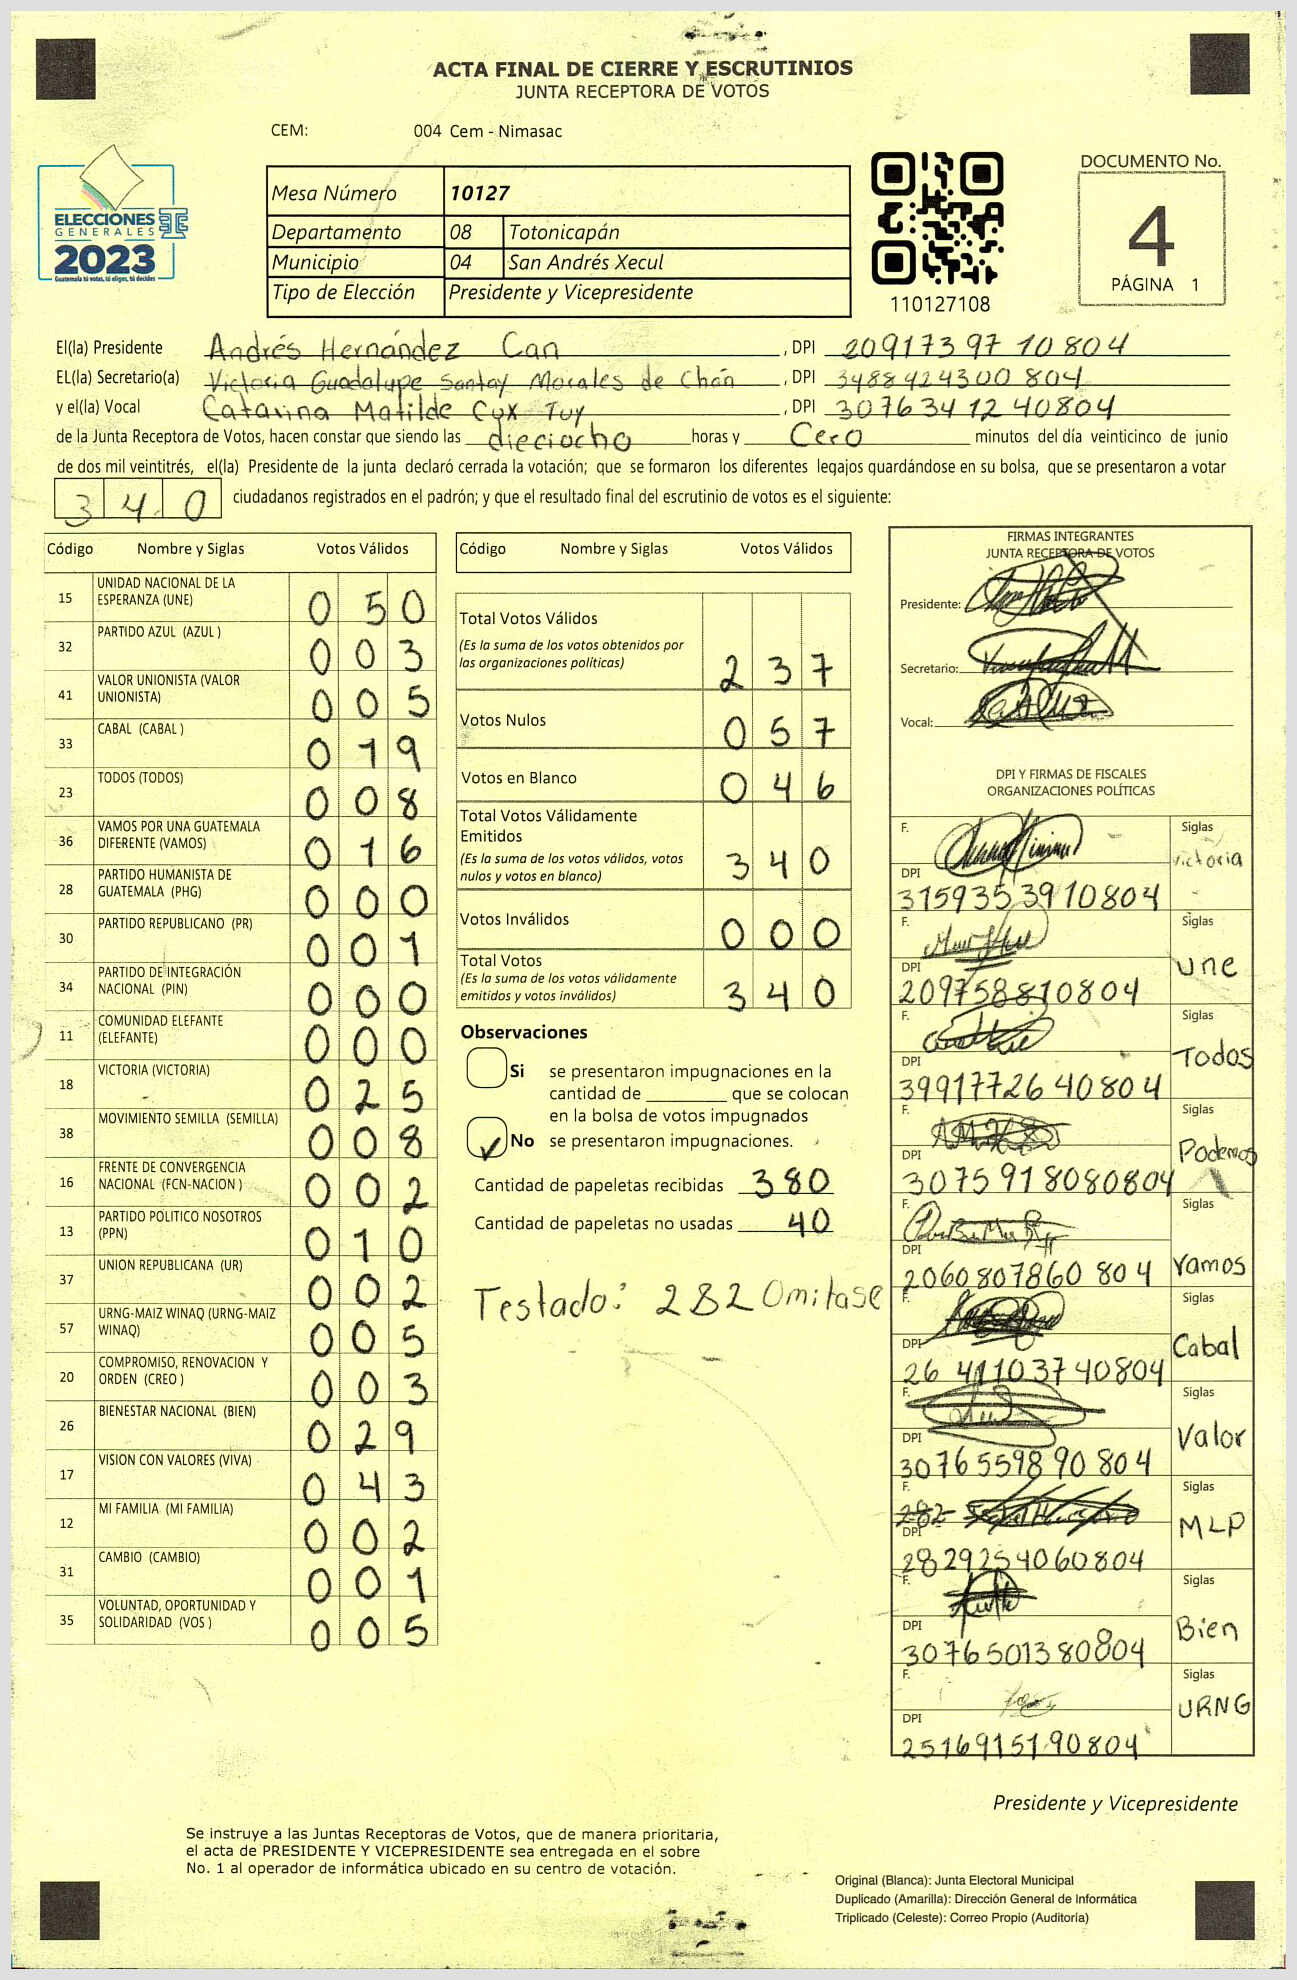 ACTA FINAL DE CIERRE Y ESCRUTINIOS
JUNTA RECEPTORA DE VOTOS
CEM: 004 Cem - Nimasac
ELECCIONES
GENERALES
2023
Guatemala tú votas, tú eliges, tú decides
Mesa Número 10127
Departamento 08 Totonicapán
Municipio 04 San Andrés Xecul
Tipo de Elección Presidente y Vicepresidente
110127108
DOCUMENTO No.
4
PÁGINA 1
El(la) Presidente Andrés Hernández Can, DPI 2091739710804
EL(la) Secretario(a) Victoria Guadalupe Santay Morales de Chán, DPI 3488924300804
y el(la) Vocal Catarina Matilde Cux Tuy, DPI 3076341240804
de la Junta Receptora de Votos, hacen constar que siendo las dieciocho horas y Cero minutos del día veinticinco de junio
de dos mil veintitrés, el(la) Presidente de la junta declaró cerrada la votación; que se formaron los diferentes legajos guardándose en su bolsa, que se presentaron a votar
340 ciudadanos registrados en el padrón; y que el resultado final del escrutinio de votos es el siguiente:
Código Nombre y Siglas Votos Válidos
15 UNIDAD NACIONAL DE LA ESPERANZA (UNE) 050
32 PARTIDO AZUL (AZUL ) 003
41 VALOR UNIONISTA (VALOR UNIONISTA) 005
33 CABAL (CABAL ) 019
23 TODOS (TODOS) 008
36 VAMOS POR UNA GUATEMALA DIFERENTE (VAMOS) 016
28 PARTIDO HUMANISTA DE GUATEMALA (PHG) 000
30 PARTIDO REPUBLICANO (PR) 001
34 PARTIDO DE INTEGRACIÓN NACIONAL (PIN) 000
11 COMUNIDAD ELEFANTE (ELEFANTE) 000
18 VICTORIA (VICTORIA) 025
38 MOVIMIENTO SEMILLA (SEMILLA) 008
16 FRENTE DE CONVERGENCIA NACIONAL (FCN-NACION ) 002
13 PARTIDO POLITICO NOSOTROS (PPN) 010
37 UNION REPUBLICANA (UR) 002
57 URNG-MAIZ WINAQ (URNG-MAIZ WINAQ) 005
20 COMPROMISO, RENOVACION Y ORDEN (CREO ) 003
26 BIENESTAR NACIONAL (BIEN) 029
17 VISION CON VALORES (VIVA) 043
12 MI FAMILIA (MI FAMILIA) 002
31 CAMBIO (CAMBIO) 001
35 VOLUNTAD, OPORTUNIDAD Y SOLIDARIDAD (VOS ) 005
Código Nombre y Siglas Votos Válidos
Total Votos Válidos 237
(Es la suma de los votos obtenidos por
las organizaciones políticas)
Votos Nulos 057
Votos en Blanco 046
Total Votos Válidamente
Emitidos 340
(Es la suma de los votos válidos, votos
nulos y votos en blanco)
Votos Inválidos 000
Total Votos 340
(Es la suma de los votos válidamente
emitidos y votos inválidos)
Observaciones
Si se presentaron impugnaciones en la
cantidad de ________ que se colocan
en la bolsa de votos impugnados
No se presentaron impugnaciones.
Cantidad de papeletas recibidas 380
Cantidad de papeletas no usadas 40
Testado: 282 Omitase
FIRMAS INTEGRANTES
JUNTA RECEPTORA DE VOTOS
Presidente:
Secretario:
Vocal:
DPI Y FIRMAS DE FISCALES
ORGANIZACIONES POLÍTICAS
F. Siglas
victoria
DPI
3159353910804
F. Siglas
une
DPI
209758810804
F. Siglas
Todos
DPI
3991772640804
F. Siglas
Podemos
DPI
3075918080804
F. Siglas
vamos
DPI
2060807860804
F. Siglas
Cabal
DPI
2641103740804
F. Siglas
Valor
DPI
3076559890804
F. Siglas
282
MLP
DPI
2829254060804
F. Siglas
Bien
DPI
3076501380804
F. Siglas
URNG
DPI
2516915190804
Presidente y Vicepresidente
Se instruye a las Juntas Receptoras de Votos, que de manera prioritaria,
el acta de PRESIDENTE Y VICEPRESIDENTE sea entregada en el sobre
No. 1 al operador de informática ubicado en su centro de votación.
Original (Blanca): Junta Electoral Municipal
Duplicado (Amarilla): Dirección General de Informática
Triplicado (Celeste): Correo Propio (Auditoría)